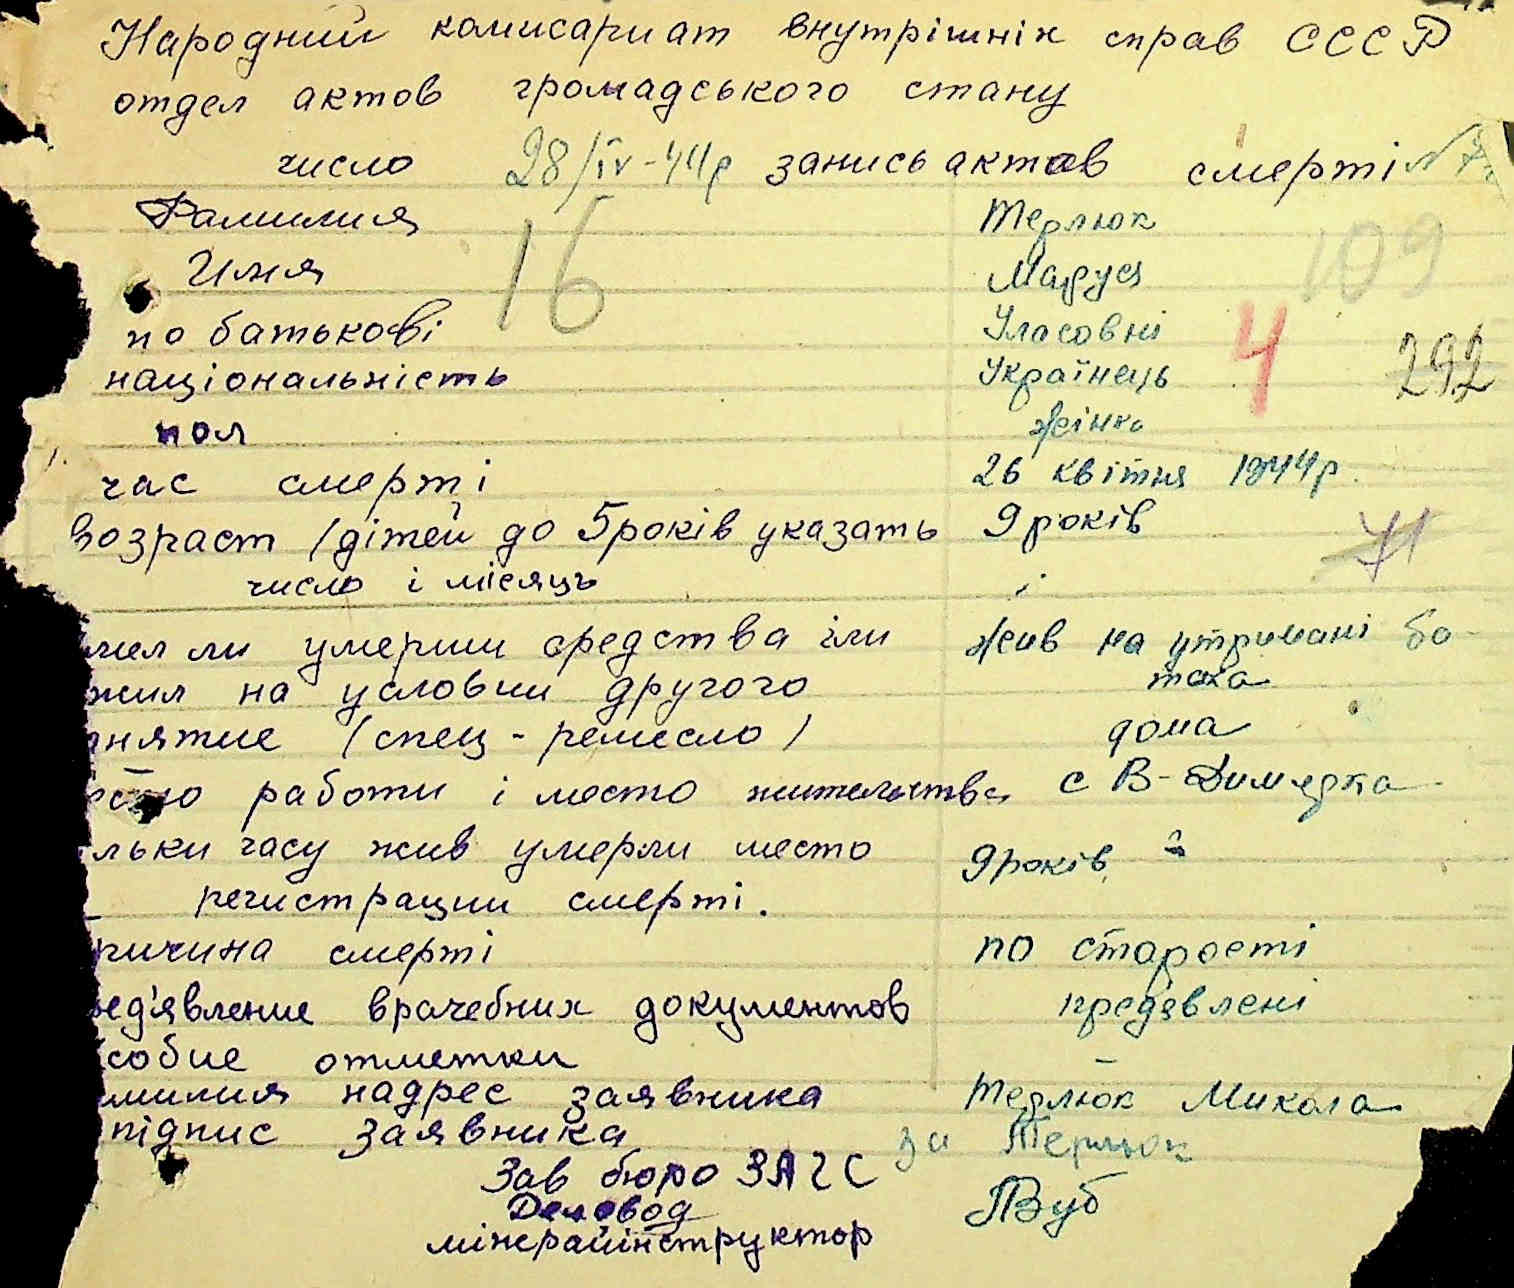 Народний комисариат внутрішніх справ СССР
отдел актов громадського стану
число 28/IV-44р запись актов смерті N 7
Фамилия Терлюк
16 109
Имя Маруся
по батькові Уласовні
4 292
національність Українець
пол жінка
час смерті 26 квітня 1944р.
возраст (дітей до 5 років указать 9 років
71
число і місяць
мел ли умерши средства іли жив на утримані ба-
жил на условии другого тька
анятие (спец-ремесло) дома
работи і место жительства с В-Димярка
льки часу жив умерли место 9 років
регистрации смерті.
ричина смерті по старості
ед'явление врачебних документов предявлені
собие отметки –
милия надрес заявника Терлюк Микола
підпис заявника за Терлюк
Зав бюро ЗАГС
Деловод
міжрайінструктор